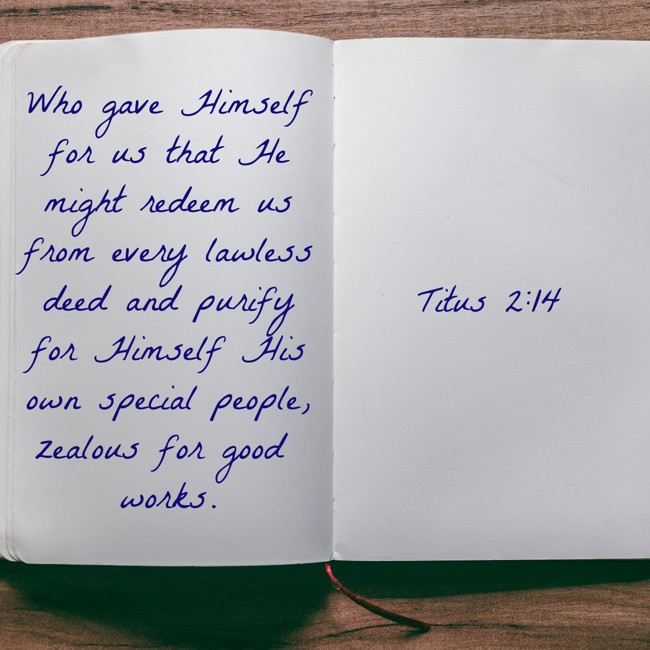 Who gave Himself
for us that He
might redeem us
from every lawless
deed and purify
for Himself His
own special people,
zealous for good
works.
Titus 2:14